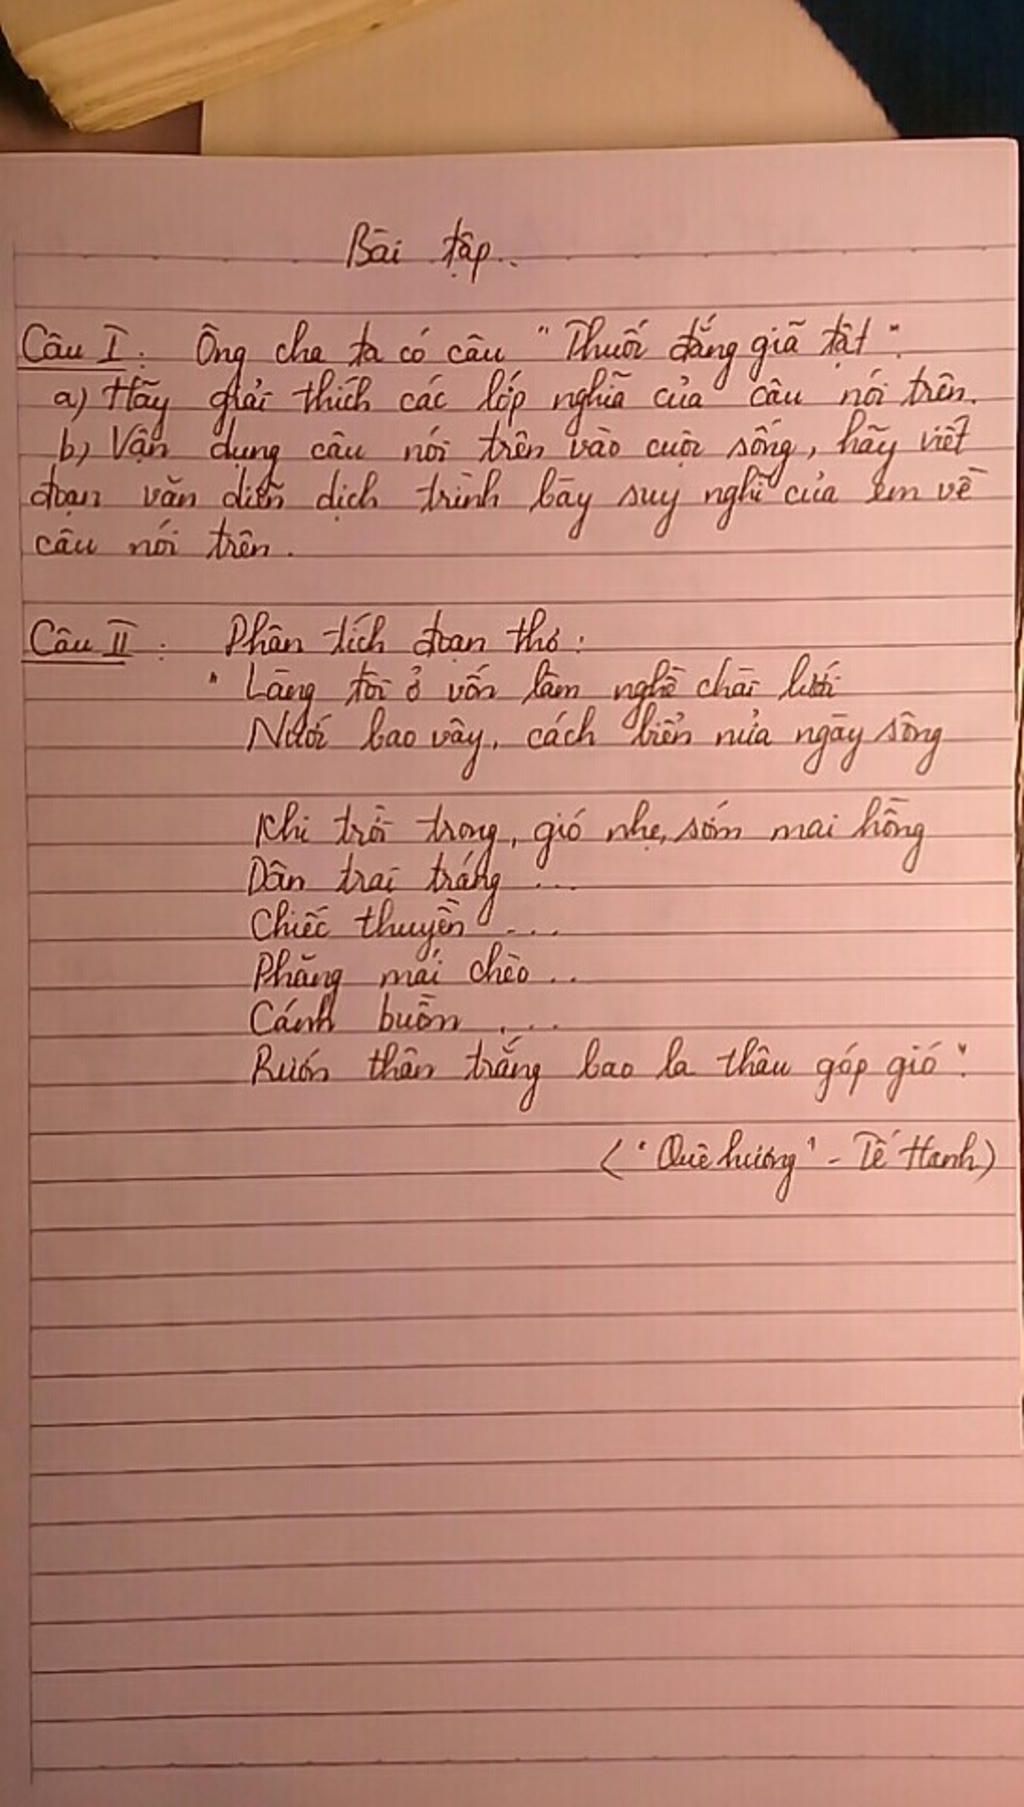 Bài tập..
Câu I: Ông cha ta có câu "Thuốc đắng giã tật".
a) Hãy giải thích các lớp nghĩa của câu nói trên.
b) Vận dụng câu nói trên vào cuộc sống, hãy viết
đoạn văn diễn dịch trình bày suy nghĩ của em về
câu nói trên.
Câu II: Phân tích đoạn thơ:
"Làng tôi ở vốn làm nghề chài lưới
Nước bao vây, cách biển nửa ngày sông
Khi trời trong, gió nhẹ, sớm mai hồng
Dân trai tráng ...
Chiếc thuyền ...
Phăng mái chèo ..
Cánh buồm ....
Rướn thân trắng bao la thâu góp gió".
("Quê hương" - Tế Hanh)